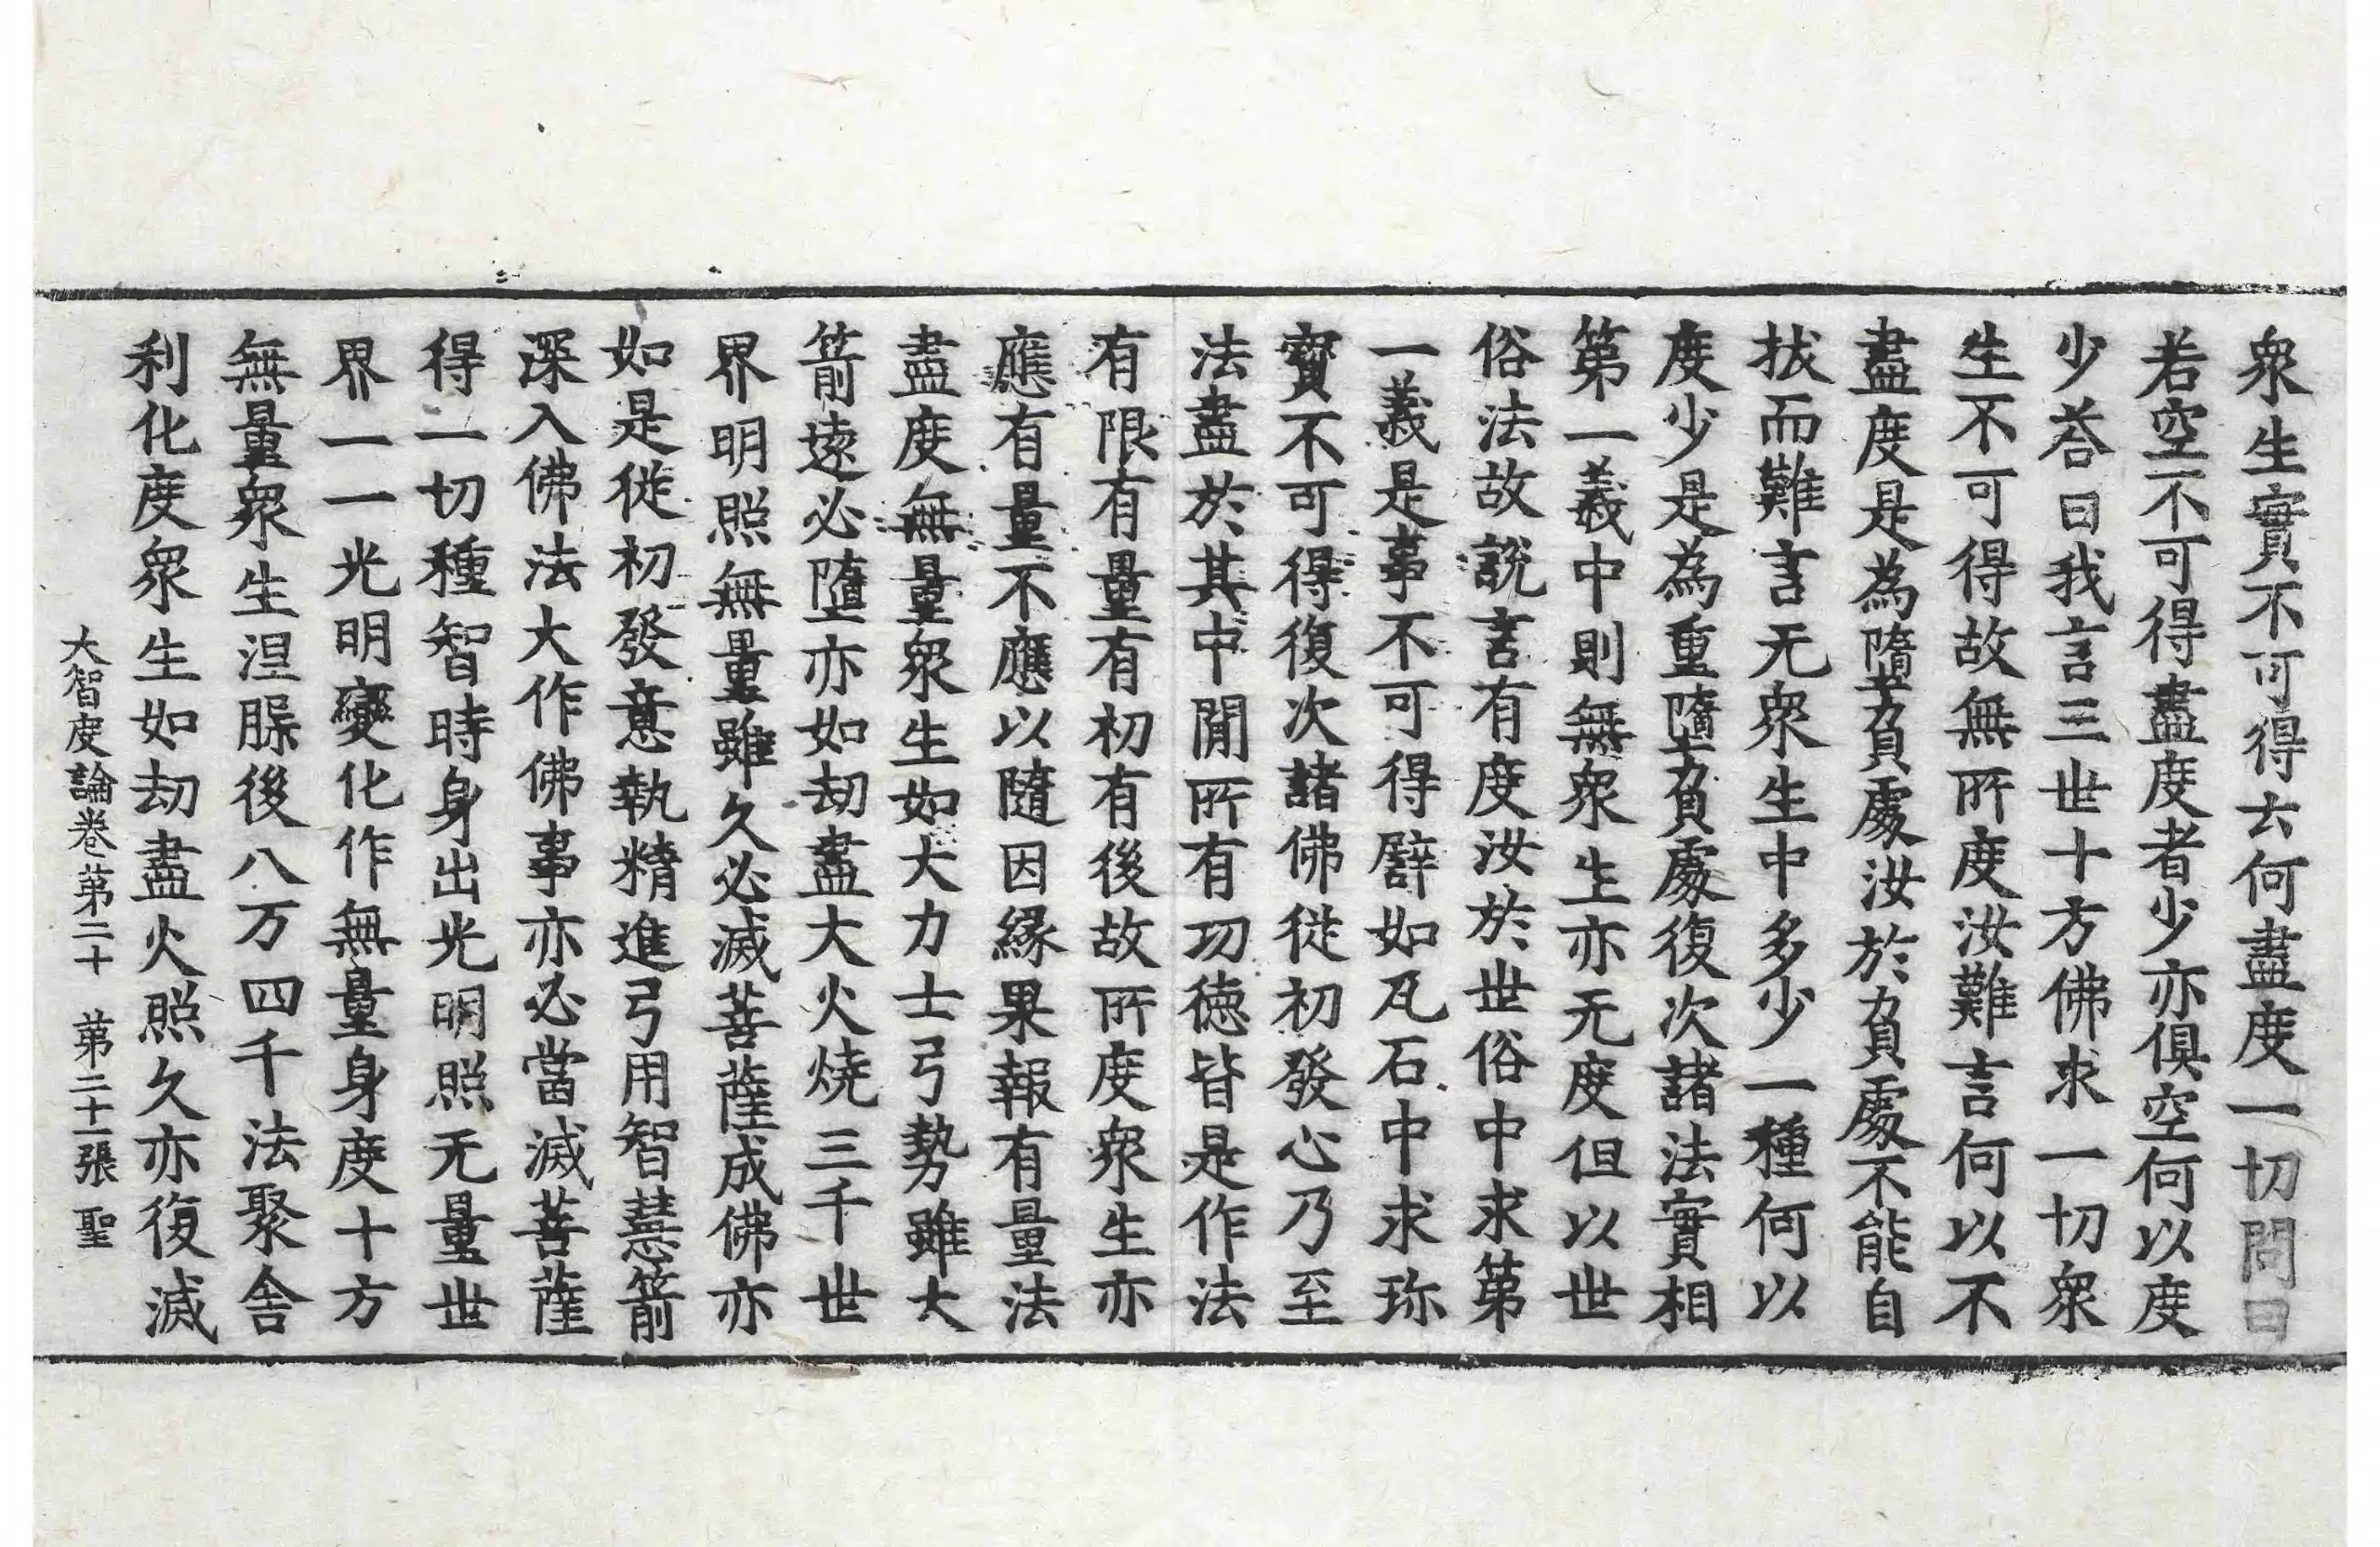 衆生實不可得云何盡度一切問曰
若空不可得盡度者少亦俱空何以度
少荅曰我言三世十方佛求一切衆
生不可得故無所度汝難言何以不
盡度是為墮負處汝於負處不能自
拔而難言无衆生中多少一種何以
度少是為重墮負處復次諸法實相
第一義中則無衆生亦无度但以世
俗法故說言有度汝於世俗中求第
一義是事不可得譬如瓦石中求珎
寳不可得復次諸佛從初發心乃至
法盡於其中閒所有功徳皆是作法
有限有量有初有後故所度衆生亦
應有量不應以隨因縁果報有量法
盡度無量衆生如大力士弓勢雖大
箭遠必墮亦如劫盡大火燒三千世
界明照無量雖久必滅菩薩成佛亦
如是從初發意執精進弓用智慧箭
深入佛法大作佛事亦必當滅菩薩
得一切種智時身出光明照无量世
界一一光明變化作無量身度十方
無量衆生涅槃後八万四千法聚舍
利化度衆生如劫盡火照久亦復滅
大智度論卷第二十　第二十一張　聖